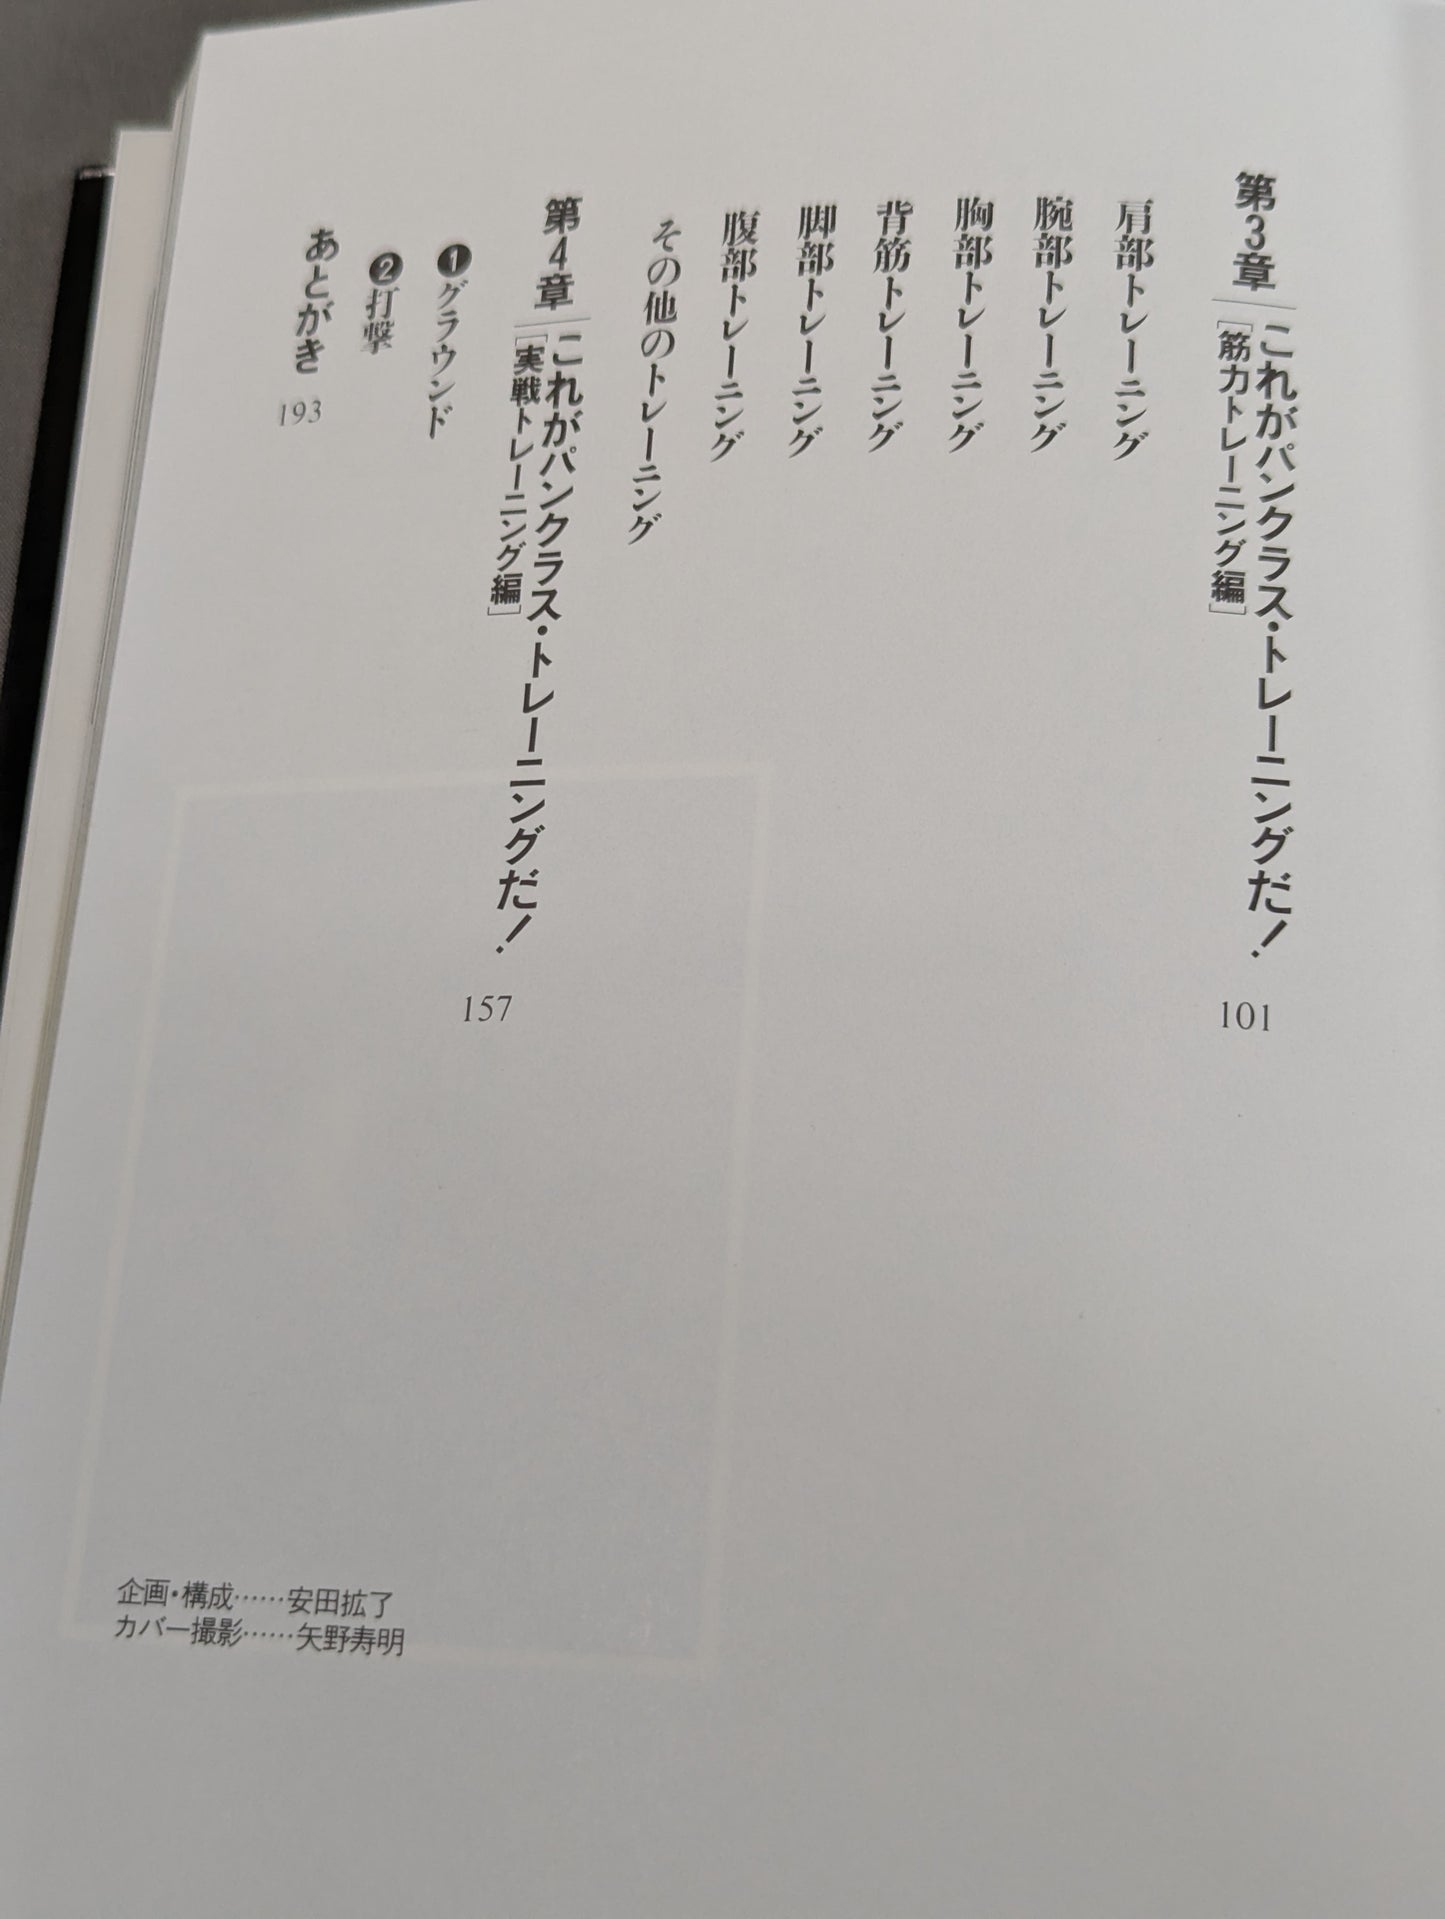 第3章
これがパンクラス・トレーニングだ！
［筋力トレーニング編］
101
肩部トレーニング
腕部トレーニング
胸部トレーニング
背筋トレーニング
脚部トレーニング
腹部トレーニング
その他のトレーニング
第4章
これがパンクラス・トレーニングだ！
［実戦トレーニング編］
157
❶グラウンド
❷打撃
あとがき
193
企画・構成……安田拡了
カバー撮影……矢野寿明